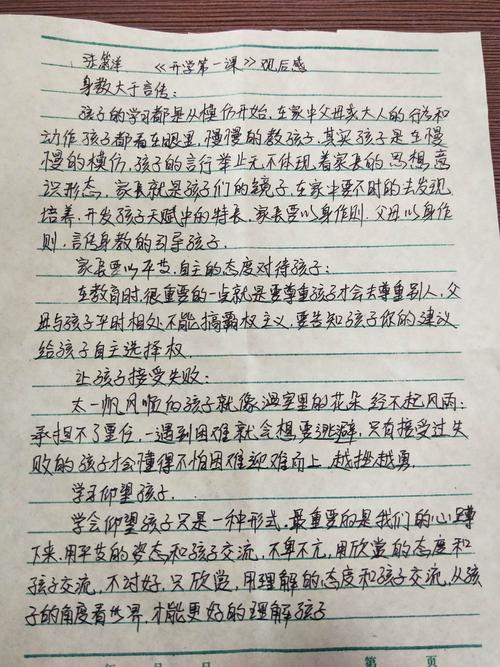 张   洋 《开学第一课》观后感
身教大于言传:
孩子的学习都是从模仿开始,在家中父母亲大人的行为和
动作,孩子都看在眼里,慢慢的教孩子,其实孩子是在慢
慢的模仿,孩子的言行举止无不体现着家长的思想,意
识形态,家长就是孩子们的镜子,在家中要不时的去发现,
培养,开发孩子天赋中的特长,家长要以身作则,父母以身作
则,言传身教的引导孩子.
家长要以平等,自主的态度对待孩子:
在教育时,很重要的一点就是要尊重孩子才会去尊重别人,父
母与孩子平时相处不能搞霸权主义,要告知孩子你的建议
给孩子自主选择权.
让孩子接受失败:
太一帆风顺的孩子就像温室里的花朵经不起风雨:
承担不了重任,一遇到困难就会想要逃避,只有接受过失
败的孩子才会懂得不怕困难迎难而上,越挫越勇.
学习仰望孩子.
学会仰望孩子只是一种形式,最重要的是我们的心蹲
下来,用平等的姿态和孩子交流,不卑不亢,用欣赏的态度和
孩子交流,不讨好,只欣赏,用理解的态度和孩子交流,从孩
子的角度看世界,才能更好的理解孩子
年 月 日 第 页